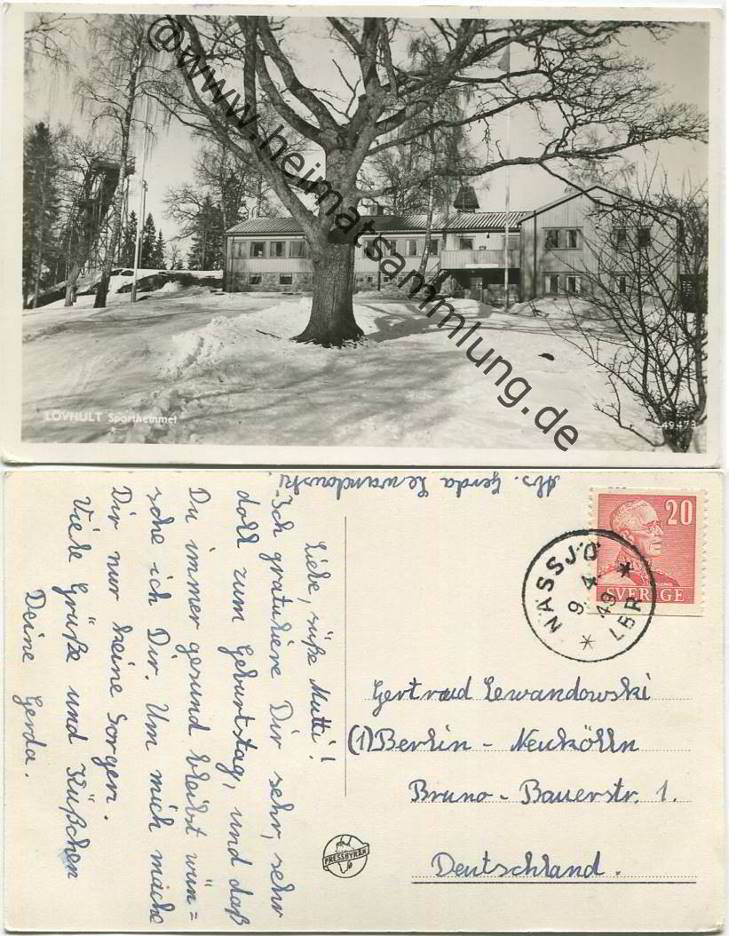 @www.heimatsammlung.de
LÖVHULT SportHemmet
Abs. Gerda Lewandowski.
20
SVERIGE
NÄSSJÖ
9. 4.
49
LBR
Liebe, süße Mutti!
Ich gratuliere Dir sehr, sehr
doll zum Geburtstag, und daß
Du immer gesund bleibst wün=
sche ich Dir. Um mich mache
Dir nur keine Sorgen.
Viele Grüße und Küßchen
Deine Gerda.
Gertrud Lewandowski
(1) Berlin - Neukölln
Bruno - Bauerstr. 1.
Deutschland.
PRESSBYRÅN